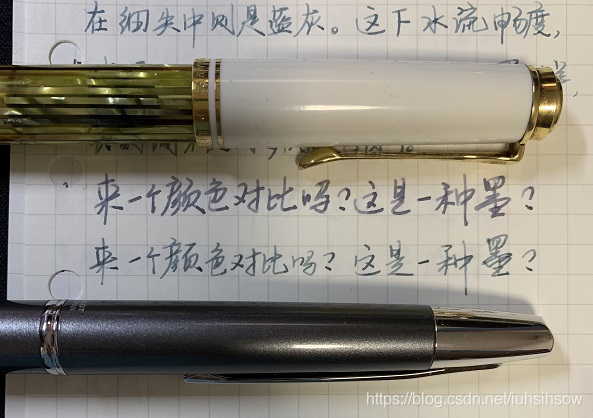 在细尖中则是蓝灰。这下水流畅度,
来一个颜色对比吗?这是一种墨?
来一个颜色对比吗?这是一种墨?
https://blog.csdn.net/iuhsihsow